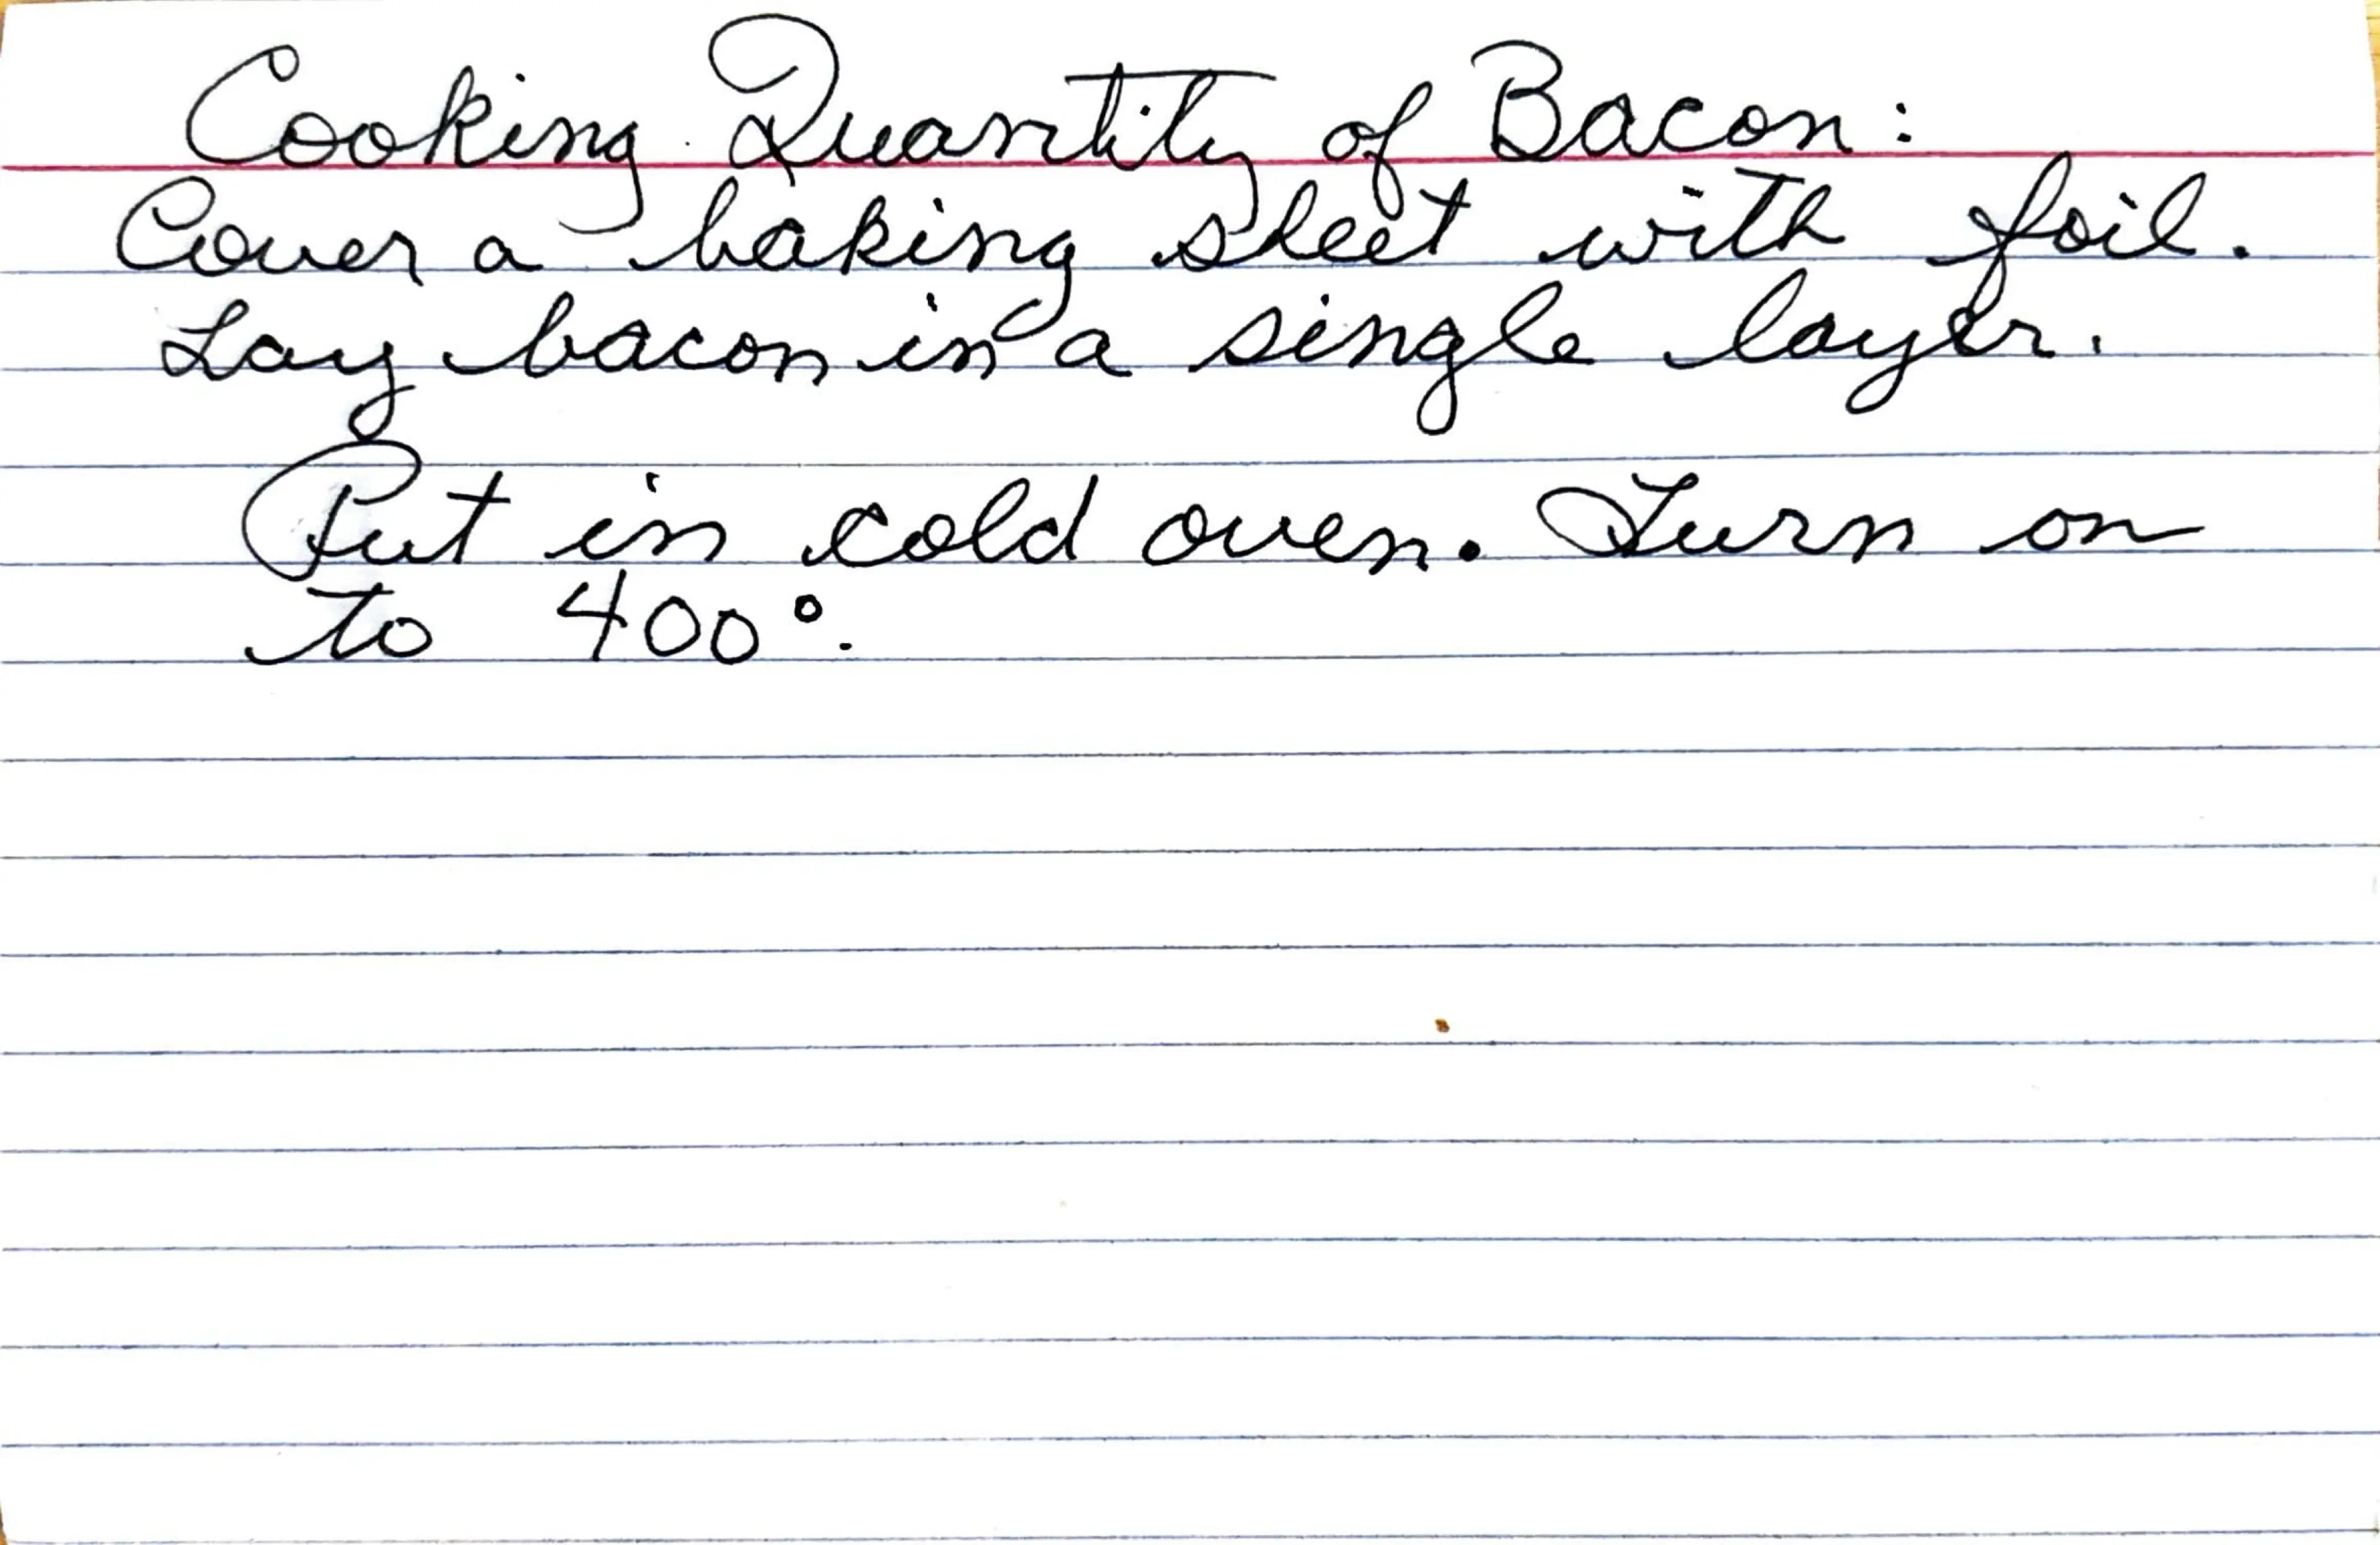 Cooking Quantity of Bacon:
Cover a baking sheet with foil.
Lay bacon in a single layer.
Put in cold oven. Turn on
to 400°.